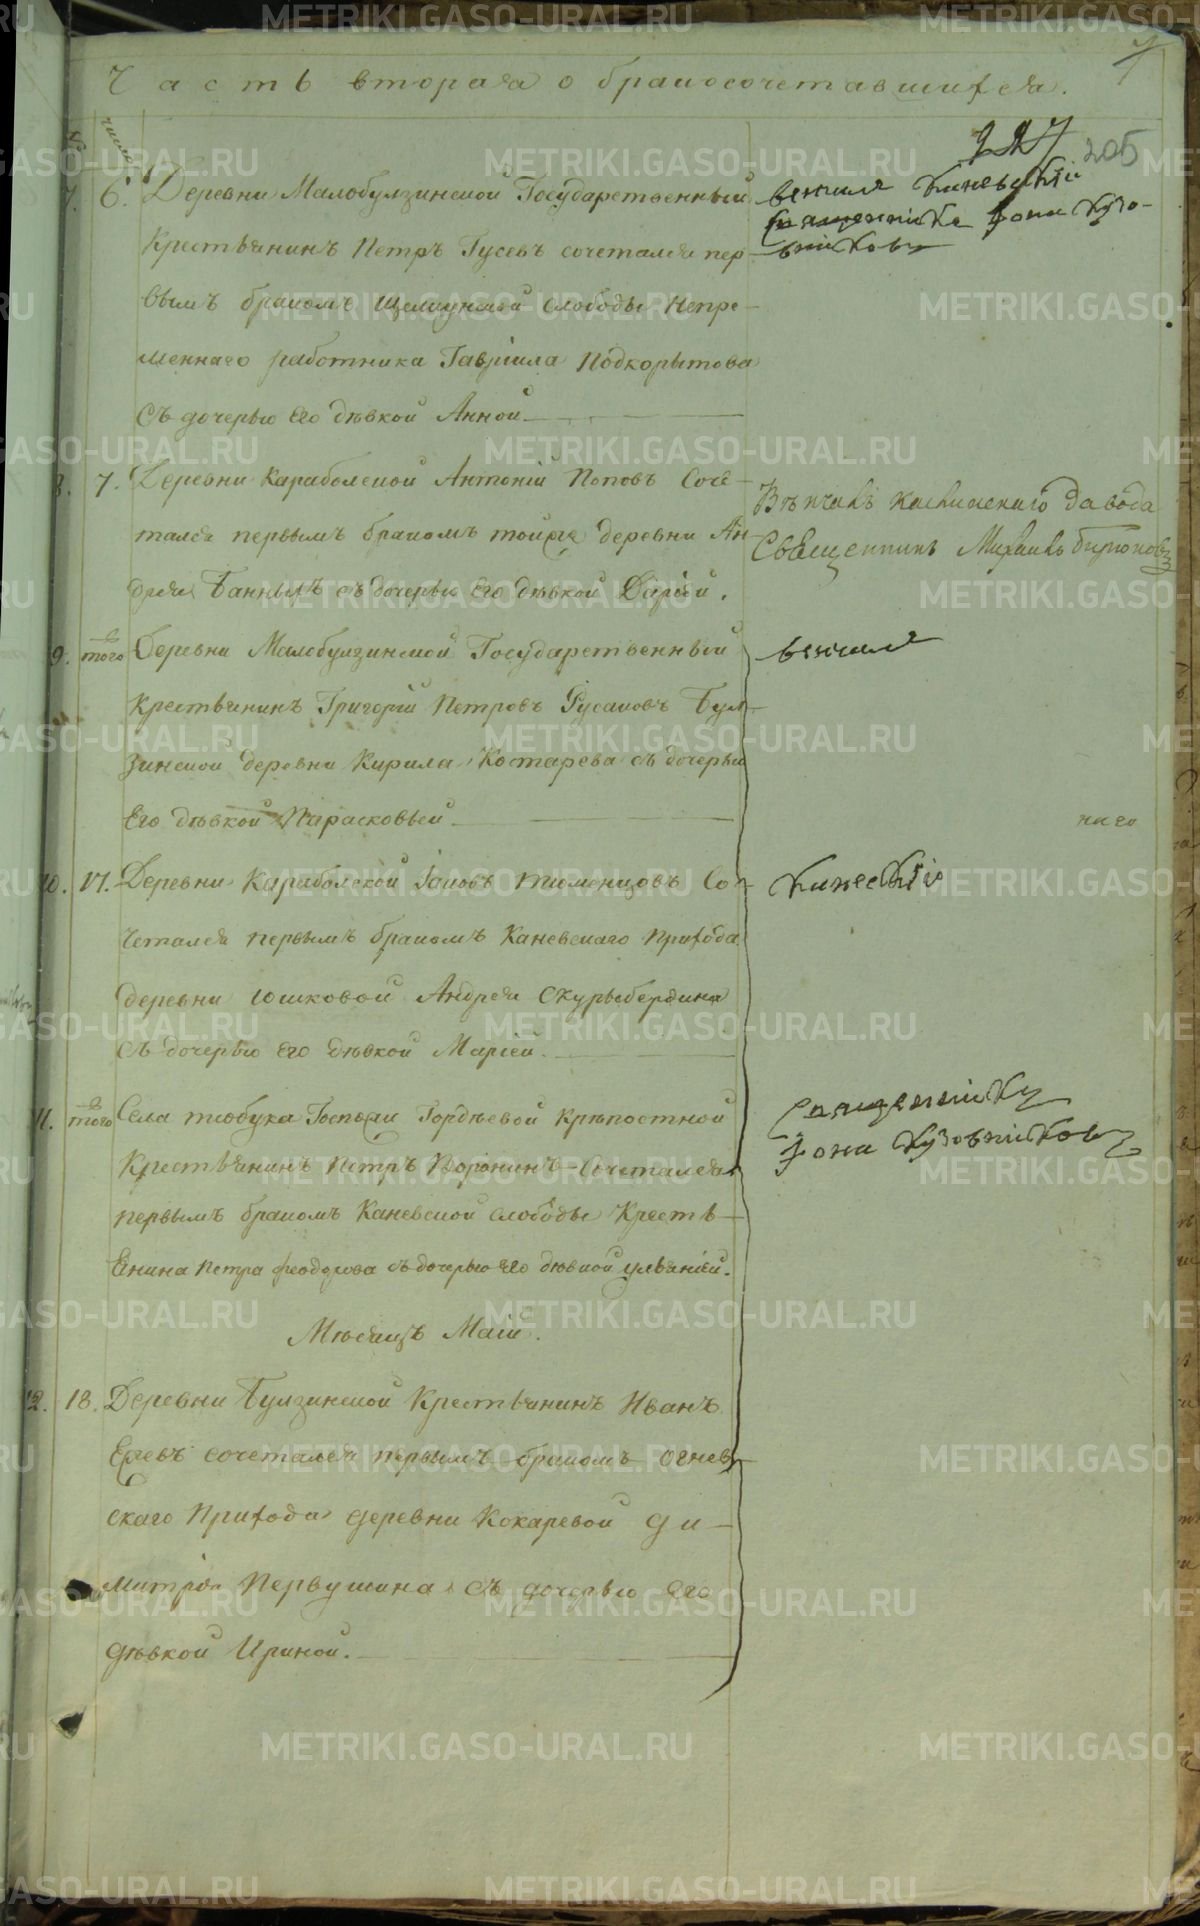 Часть вторая о бракосочетавшихся.
205
№
число
7. 6. Деревни Малобулзинской Государственный
Крестьянинъ Петръ Гусевъ сочетался пер-
вымъ бракомъ Щелкунской слободы Непре-
меннаго работника Гавріила Подкорытова
съ дочерью Его дѣвкой Анной
венчалъ Каневскій
священникъ Іона Кузо-
вниковъ
8. 7. Деревни Караболской Антоній Поповъ Соче-
тался первымъ бракомъ тойже деревни Ан
дрея Банныхъ съ дочерью Его дѣвкой Даріей.
Вѣнчалъ Каслинскаго Завода
Священникъ Михаилъ Бирюковъ
9. того Деревни Малобулзинской Государственный
Крестьянинъ Григорій Петровъ Русаковъ Бул-
зинской деревни Кирила Костарева съ дочерью
Его дѣвкой Парасковьей
венчалъ
10. 17. Деревни Караболской Іаковъ Тюменцовъ Со-
четался первымъ бракомъ Каневскаго Прихода
деревни Юшковой Андрея Скурыбердина
съ дочерью Его дѣвкой Маріей.
Каневскій
11. того Села Тюбука Господи Гордѣевой Крѣпостной
Крестьянинъ Петръ Воронинъ Сочетался
первымъ бракомъ Каневской слободы Кресть-
янина Петра Феодорова съ дочерью Его дѣвкой Ульяніей.
священникъ
Іона Кузовниковъ
Мѣсяцъ Маій.
12. 18. Деревни Булзинской Крестьянинъ Иванъ
Ежевъ сочетался первымъ бракомъ Огнев-
скаго Прихода деревни Кокаревой Ди-
митрія Первушина съ дочерью Его
дѣвкой Ириной.
METRIKI.GASO-URAL.RU